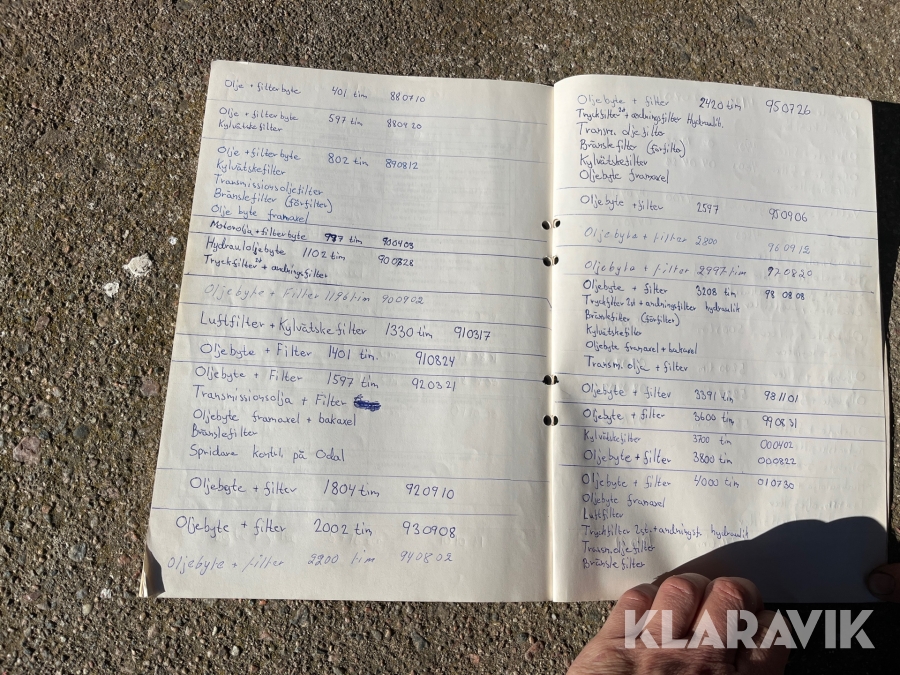 Olje + filterbyte 401 tim 880710
Olje + filterbyte 597 tim 880920
Kylvätskefilter
Olje + filterbyte 802 tim 890812
Kylvätskefilter
Transmissionsoljefilter
Bränslefilter (förfilter)
Olje byte framaxel
Motorolja + filterbyte 997 tim 900403
Hydrauloljebyte 1102 tim 900828
Tryckfilter 2st + andningsfilter
Oljebyte + Filter 1196 tim 900902
Luftfilter + Kylvätskefilter 1330 tim 910317
Oljebyte + Filter 1401 tim. 910824
Oljebyte + Filter 1597 tim 920321
Transmissionsolja + Filter
Oljebyte framaxel + bakaxel
Bränslefilter
Spridare kontrl. på Odal
Oljebyte + filter 1804 tim 920910
Oljebyte + filter 2002 tim 930908
Oljebyte + filter 2200 tim 940802
Oljebyte + filter 2420 tim 950726
Tryckfilter 2st + andningsfilter Hydraulik.
Transm. oljefilter
Bränslefilter (förfilter)
Kylvätskefilter
Oljebyte framaxel
Oljebyte + filter 2597 950906
Oljebyte + filter 2800 960912
Oljebyte + filter 2997 tim 970820
Oljebyte + filter 3208 tim 980808
Tryckfilter 2st + andningsfilter hydraulik
Bränslefilter (förfilter)
Kylvätskefilter
Oljebyte framaxel + bakaxel
Transm. olja + filter
Oljebyte + filter 3391 tim 981101
Oljebyte + filter 3600 tim 990831
Kylvätskefilter 3700 tim 000402
Oljebyte + filter 3800 tim 000822
Oljebyte + filter 4000 tim 010730
Oljebyte framaxel
Luftfilter
Tryckfilter 2st. + andningsf. hydraulik
Transm. oljefilter
Bränslefilter
KLARAVIK